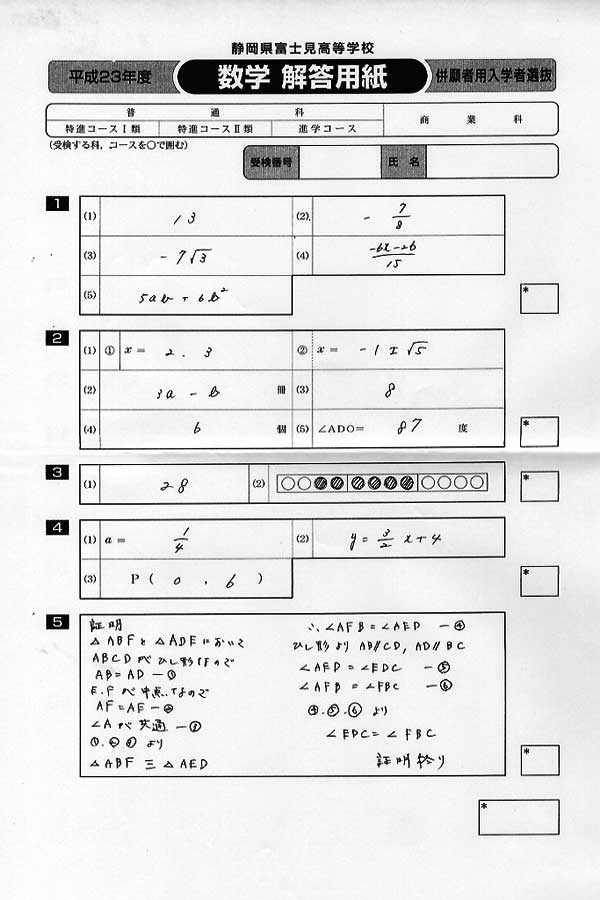 静岡県富士見高等学校
平成23年度 数学 解答用紙 併願者用入学者選抜
普通科 商業科
特進コースⅠ類 特進コースⅡ類 進学コース
(受検する科,コースを○で囲む)
受検番号 氏名
1
(1) 13 (2) - 7/8
(3) -7√3 (4) -6x-26/15
(5) 5ab+6b² *
2
(1) ① x= 2.3 ② x= -1±√5
(2) 3a-b 冊 (3) 8
(4) 6 個 (5) ∠ADO= 87 度 *
3
(1) 28 (2) *
4
(1) a= 1/4 (2) y=3/2x+4
(3) P(0,6) *
5
証明
△ABFと△ADEにおいて
ABCDがひし形なので
AB=AD―①
E.Fが中点なので
AF=AE―②
∠Aが共通―③
①.②③より
△ABF≡△AED
∴∠AFB=∠AED―④
ひし形よりAB//CD,AD//BC
∠AED=∠EDC―⑤
∠AFB=∠FBC―⑥
④.⑤.⑥より
∠EDC=∠FBC
証明終り
*
*